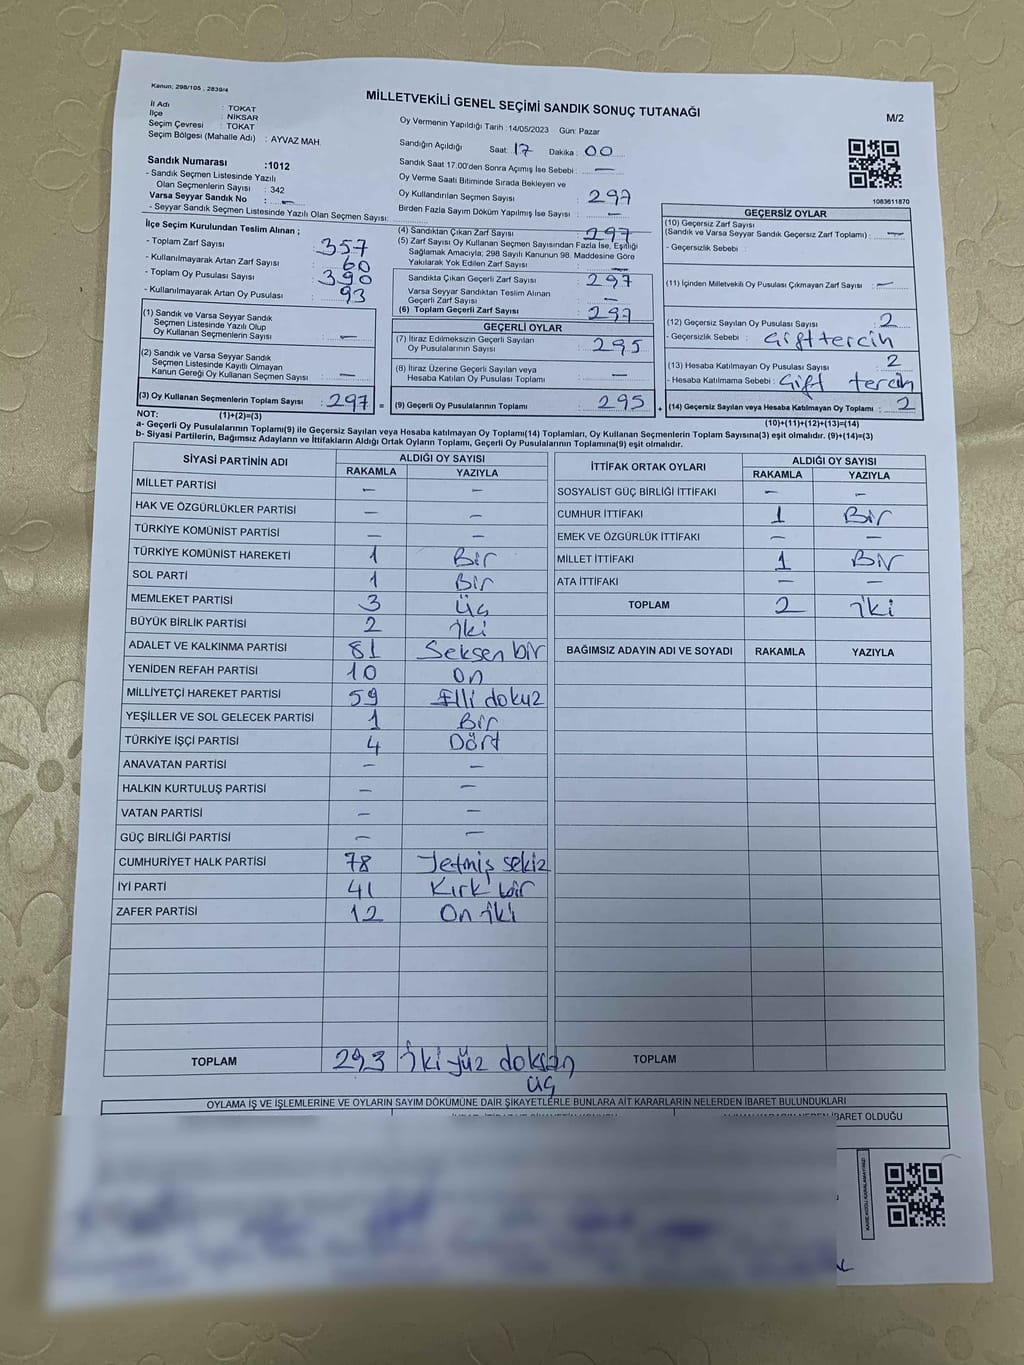 Kanun; 298/105 , 2839/4
MİLLETVEKİLİ GENEL SEÇİMİ SANDIK SONUÇ TUTANAĞI
M/2
İl Adı : TOKAT
İlçe : NİKSAR
Seçim Çevresi : TOKAT
Seçim Bölgesi (Mahalle Adı) : AYVAZ MAH.
Sandık Numarası :1012
- Sandık Seçmen Listesinde Yazılı
Olan Seçmenlerin Sayısı : 342
Varsa Seyyar Sandık No : —
- Seyyar Sandık Seçmen Listesinde Yazılı Olan Seçmen Sayısı:
Oy Vermenin Yapıldığı Tarih :14/05/2023 Gün: Pazar
Sandığın Açıldığı Saat: 17 Dakika : 00
Sandık Saat 17.00'den Sonra Açımış İse Sebebi : —
Oy Verme Saati Bitiminde Sırada Bekleyen ve
Oy Kullandırılan Seçmen Sayısı : 297
Birden Fazla Sayım Döküm Yapılmış İse Sayısı : —
1083611870
İlçe Seçim Kurulundan Teslim Alınan ;
- Toplam Zarf Sayısı : 357
- Kullanılmayarak Artan Zarf Sayısı : 60
- Toplam Oy Pusulası Sayısı : 390
- Kullanılmayarak Artan Oy Pusulası : 93
(1) Sandık ve Varsa Seyyar Sandık
Seçmen Listesinde Yazılı Olup
Oy Kullanan Seçmenlerin Sayısı : —
(2) Sandık ve Varsa Seyyar Sandık
Seçmen Listesinde Kayıtlı Olmayan
Kanun Gereği Oy Kullanan Seçmen Sayısı : —
(3) Oy Kullanan Seçmenlerin Toplam Sayısı : 297 =
(4) Sandıktan Çıkan Zarf Sayısı : 297
(5) Zarf Sayısı Oy Kullanan Seçmen Sayısından Fazla İse, Eşitliği
Sağlamak Amacıyla; 298 Sayılı Kanunun 98. Maddesine Göre
Yakılarak Yok Edilen Zarf Sayısı : —
Sandıkta Çıkan Geçerli Zarf Sayısı : 297
Varsa Seyyar Sandıktan Teslim Alınan
Geçerli Zarf Sayısı : —
(6) Toplam Geçerli Zarf Sayısı : 297
GEÇERLİ OYLAR
(7) İtiraz Edilmeksizin Geçerli Sayılan
Oy Pusulalarının Sayısı : 295
(8) İtiraz Üzerine Geçerli Sayılan veya
Hesaba Katılan Oy Pusulası Toplamı : —
(9) Geçerli Oy Pusulalarının Toplamı : 295 +
GEÇERSİZ OYLAR
(10) Geçersiz Zarf Sayısı
(Sandık ve Varsa Seyyar Sandık Geçersiz Zarf Toplamı) : —
- Geçersizlik Sebebi :
(11) İçinden Milletvekili Oy Pusulası Çıkmayan Zarf Sayısı : —
(12) Geçersiz Sayılan Oy Pusulası Sayısı : 2
- Geçersizlik Sebebi : Gift tercih
(13) Hesaba Katılmayan Oy Pusulası Sayısı : 2
- Hesaba Katılmama Sebebi : Gift tercih
(14) Geçersiz Sayılan veya Hesaba Katılmayan Oy Toplamı : 2
NOT: (1)+(2)=(3) (10)+(11)+(12)+(13)=(14)
a- Geçerli Oy Pusulalarının Toplamı(9) ile Geçersiz Sayılan veya Hesaba Katılmayan Oy Toplamı(14) Toplamları, Oy Kullanan Seçmenlerin Toplam Sayısına(3) eşit olmalıdır. (9)+(14)=(3)
b- Siyasi Partilerin, Bağımsız Adayların ve İttifakların Aldığı Ortak Oyların Toplamı, Geçerli Oy Pusulalarının Toplamına(9) eşit olmalıdır.
SİYASİ PARTİNİN ADI ALDIĞI OY SAYISI
RAKAMLA YAZIYLA
MİLLET PARTİSİ — —
HAK VE ÖZGÜRLÜKLER PARTİSİ — —
TÜRKİYE KOMÜNİST PARTİSİ — —
TÜRKİYE KOMÜNİST HAREKETİ 1 Bir
SOL PARTİ 1 Bir
MEMLEKET PARTİSİ 3 Üç
BÜYÜK BİRLİK PARTİSİ 2 İki
ADALET VE KALKINMA PARTİSİ 81 Seksen bir
YENİDEN REFAH PARTİSİ 10 On
MİLLİYETÇİ HAREKET PARTİSİ 59 Elli dokuz
YEŞİLLER VE SOL GELECEK PARTİSİ 1 Bir
TÜRKİYE İŞÇİ PARTİSİ 4 Dört
ANAVATAN PARTİSİ — —
HALKIN KURTULUŞ PARTİSİ — —
VATAN PARTİSİ — —
GÜÇ BİRLİĞİ PARTİSİ — —
CUMHURİYET HALK PARTİSİ 78 Yetmiş sekiz
İYİ PARTİ 41 Kırk bir
ZAFER PARTİSİ 12 On iki
TOPLAM 293 İki yüz doksan
üç
İTTİFAK ORTAK OYLARI ALDIĞI OY SAYISI
RAKAMLA YAZIYLA
SOSYALİST GÜÇ BİRLİĞİ İTTİFAKI — —
CUMHUR İTTİFAKI 1 Bir
EMEK VE ÖZGÜRLÜK İTTİFAKI — —
MİLLET İTTİFAKI 1 Bir
ATA İTTİFAKI — —
TOPLAM 2 İki
BAĞIMSIZ ADAYIN ADI VE SOYADI RAKAMLA YAZIYLA
TOPLAM
OYLAMA İŞ VE İŞLEMLERİNE VE OYLARIN SAYIM DÖKÜMÜNE DAİR ŞİKAYETLERLE BUNLARA AİT KARARLARIN NELERDEN İBARET BULUNDUKLARI
İBARET OLDUĞU